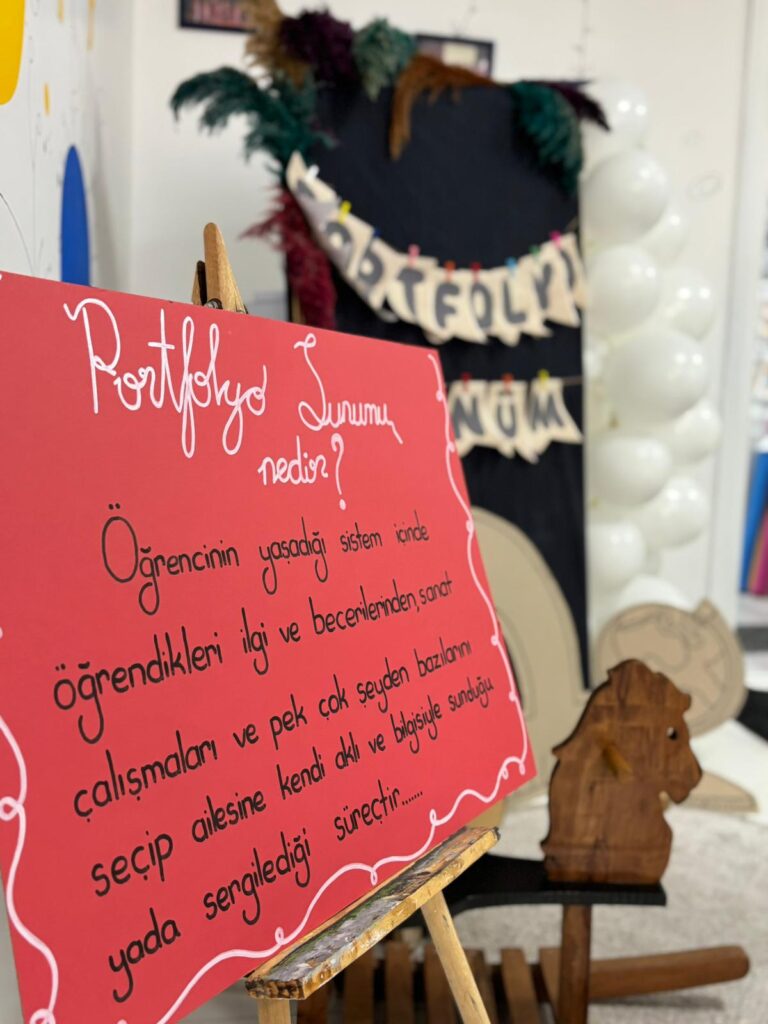 Portfolyo Sunumu
nedir?
Öğrencinin yaşadığı sistem içinde
öğrendikleri ilgi ve becerilerinden, sanat
çalışmaları ve pek çok şeyden bazılarını
seçip ailesine kendi aklı ve bilgisiyle sunduğu
yada sergilediği süreçtir.......
PORTFOLYO
NÜM